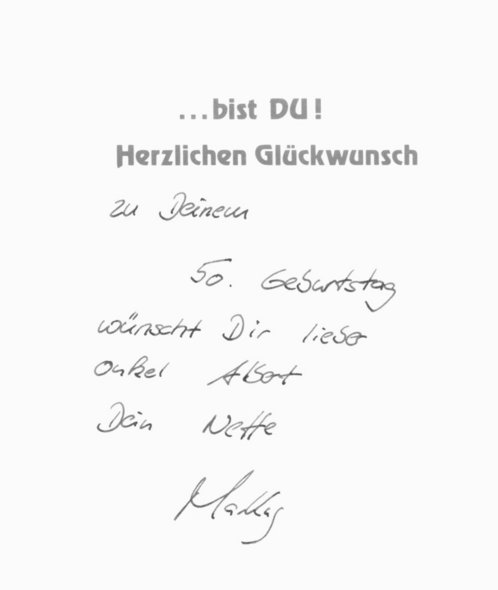 ...bist DU!
Herzlichen Glückwunsch
zu Deinem
50. Geburtstag
wünscht Dir lieber
Onkel Albert
Dein Neffe